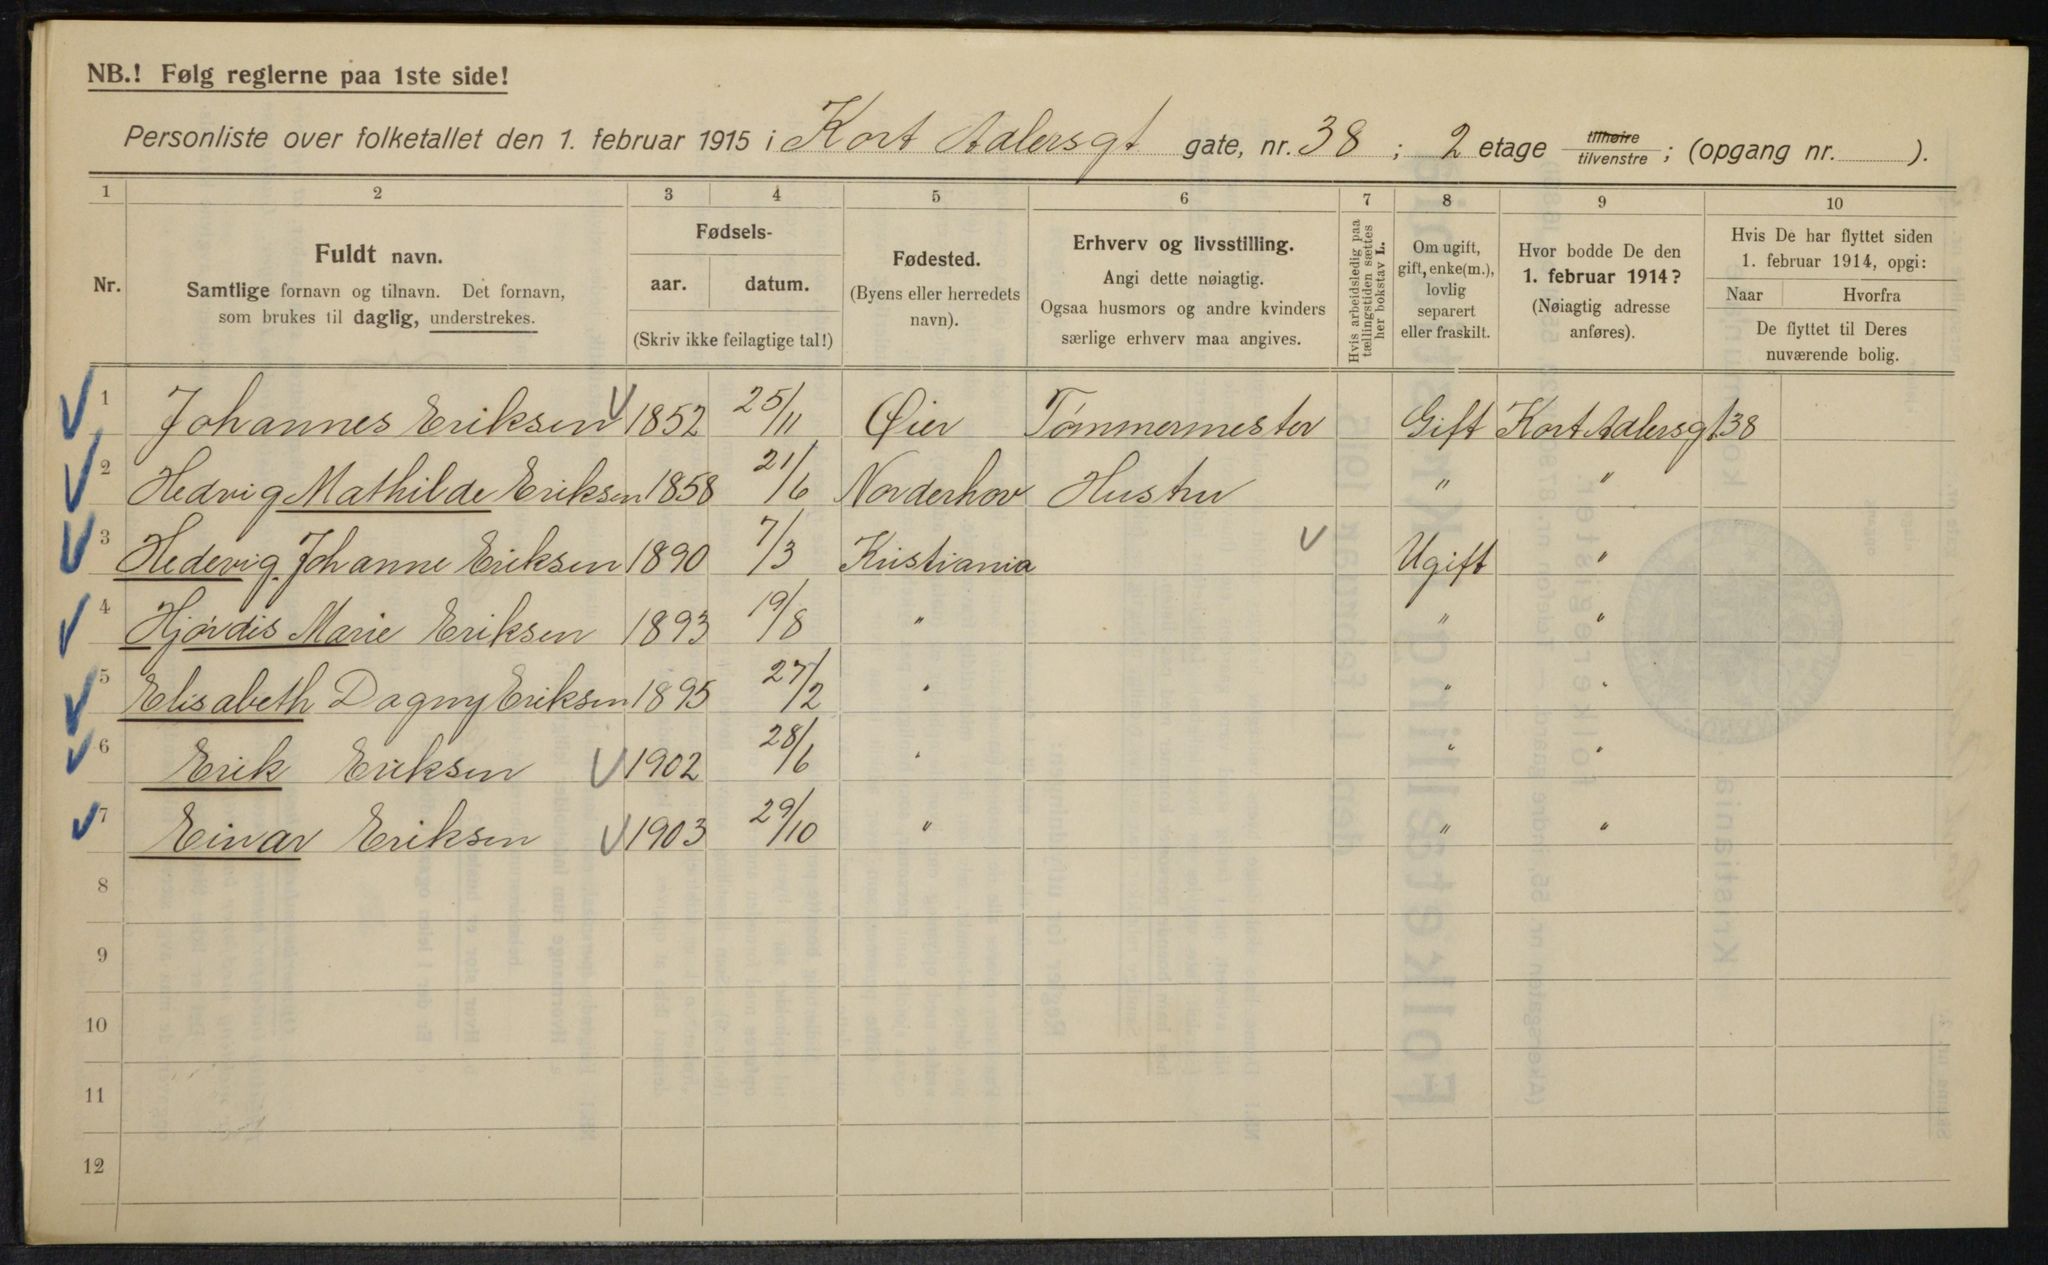 NB.! Følg reglerne paa 1ste side!
Personliste over folketallet den 1. februar 1915 i Kort Adlersgt gate, nr. 38 ; 2 etage tilhøire tilvenstre ; (opgang nr. ).
1 2 3 4 5 6 7 8 9 10
Nr.
Fuldt navn.
Samtlige fornavn og tilnavn. Det fornavn,
som brukes til daglig, understrekes.
Fødsels-
aar. datum.
(Skriv ikke feilagtige tal!)
Fødested.
(Byens eller herredets
navn).
Erhverv og livsstilling.
Angi dette nøiagtig.
Ogsaa husmors og andre kvinders
særlige erhverv maa angives.
Hvis arbeidsledig paa
tællingstiden sættes
her bokstav L.
Om ugift,
gift, enke(m.),
lovlig
separert
eller fraskilt.
Hvor bodde De den
1. februar 1914?
(Nøiagtig adresse
anføres).
Hvis De har flyttet siden
1. februar 1914, opgi:
Naar Hvorfra
De flyttet til Deres
nuværende bolig.
1 Johannes Eriksen 1852 25/11 Øier Tømmermester Gift Kort Adlersgt 38
2 Hedvig Mathilde Eriksen 1858 21/6 Norderhov Hustru " "
3 Hedevig Johanne Eriksen 1890 7/3 Kristiania Ugift "
4 Hjørdis Marie Eriksen 1893 19/8 " " "
5 Elisabeth Dagny Eriksen 1895 27/2 " " "
6 Erik Eriksen 1902 28/6 " " "
7 Einar Eriksen 1903 29/10 " " "
8
9
10
11
12